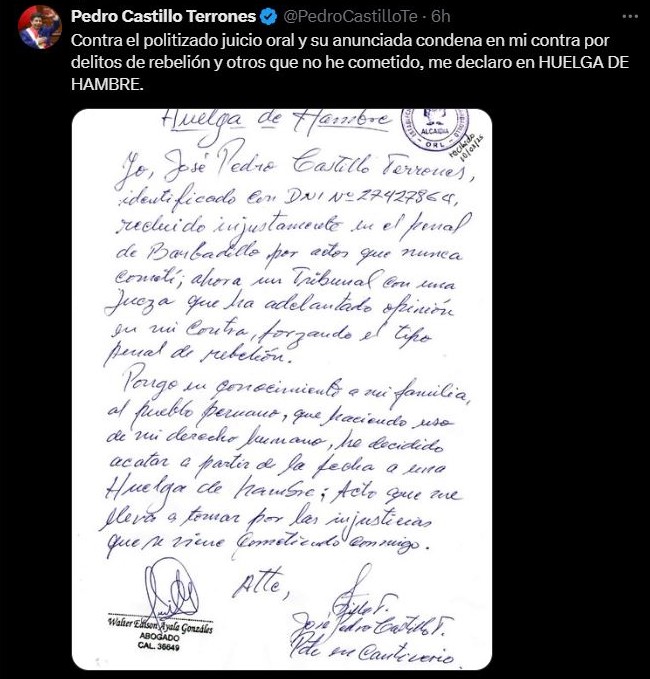 Pedro Castillo Terrones @PedroCastilloTe · 6h
Contra el politizado juicio oral y su anunciada condena en mi contra por
delitos de rebelión y otros que no he cometido, me declaro en HUELGA DE
HAMBRE.
Huelga de Hambre
ALCAIDIA
ORL
recibido
10/03/25
Yo, José Pedro Castillo Terrones,
identificado con DNI Nº 27427864,
recluido injustamente en el penal
de Barbadillo por actos que nunca
cometí; ahora un Tribunal con una
jueza que ha adelantado opinión
en mi contra, forzando el tipo
penal de rebelión.
Pongo en conocimiento a mi familia,
al pueblo peruano, que haciendo uso
de mi derecho humano, he decidido
acatar a partir de la fecha a una
Huelga de hambre; Acto que me
lleva a tomar por las injusticias
que se viene cometiendo conmigo.
Atte,
Walter Edison Ayala Gonzáles
ABOGADO
CAL. 36649
José Pedro Castillo T.
Pdte en Cautiverio.